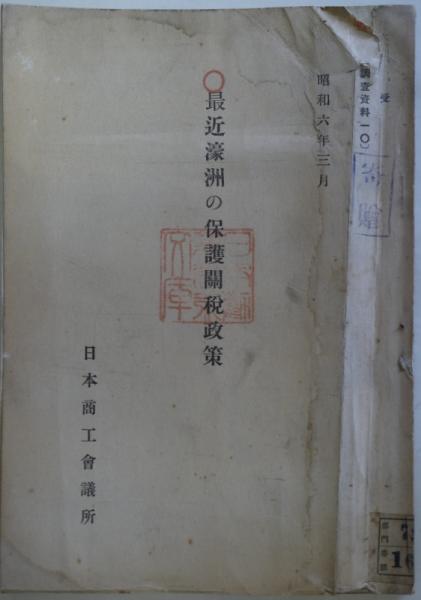 受
(調査資料一〇)
寄贈
昭和六年三月
最近濠洲の保護關税政策
文庫
日本商工會議所
部門
番號
16